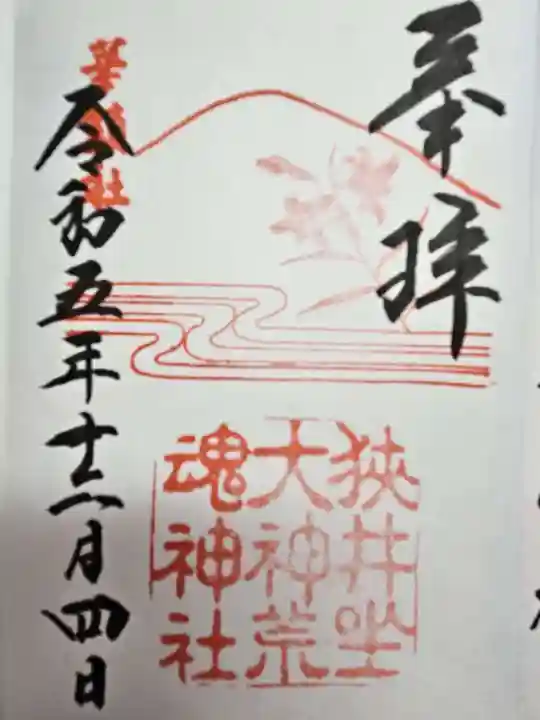 奉拝
狭井坐
大神荒
魂神社
令和五年十二月四日